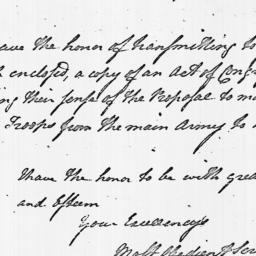 have the honor of transmitting to
enclosed, a copy of an Act of Cong
ing their sense of the Proposal to ma
Troops from the main Army to
I have the honor to be with grea
and Esteem
Your Excellency's
Most Obedient Ser